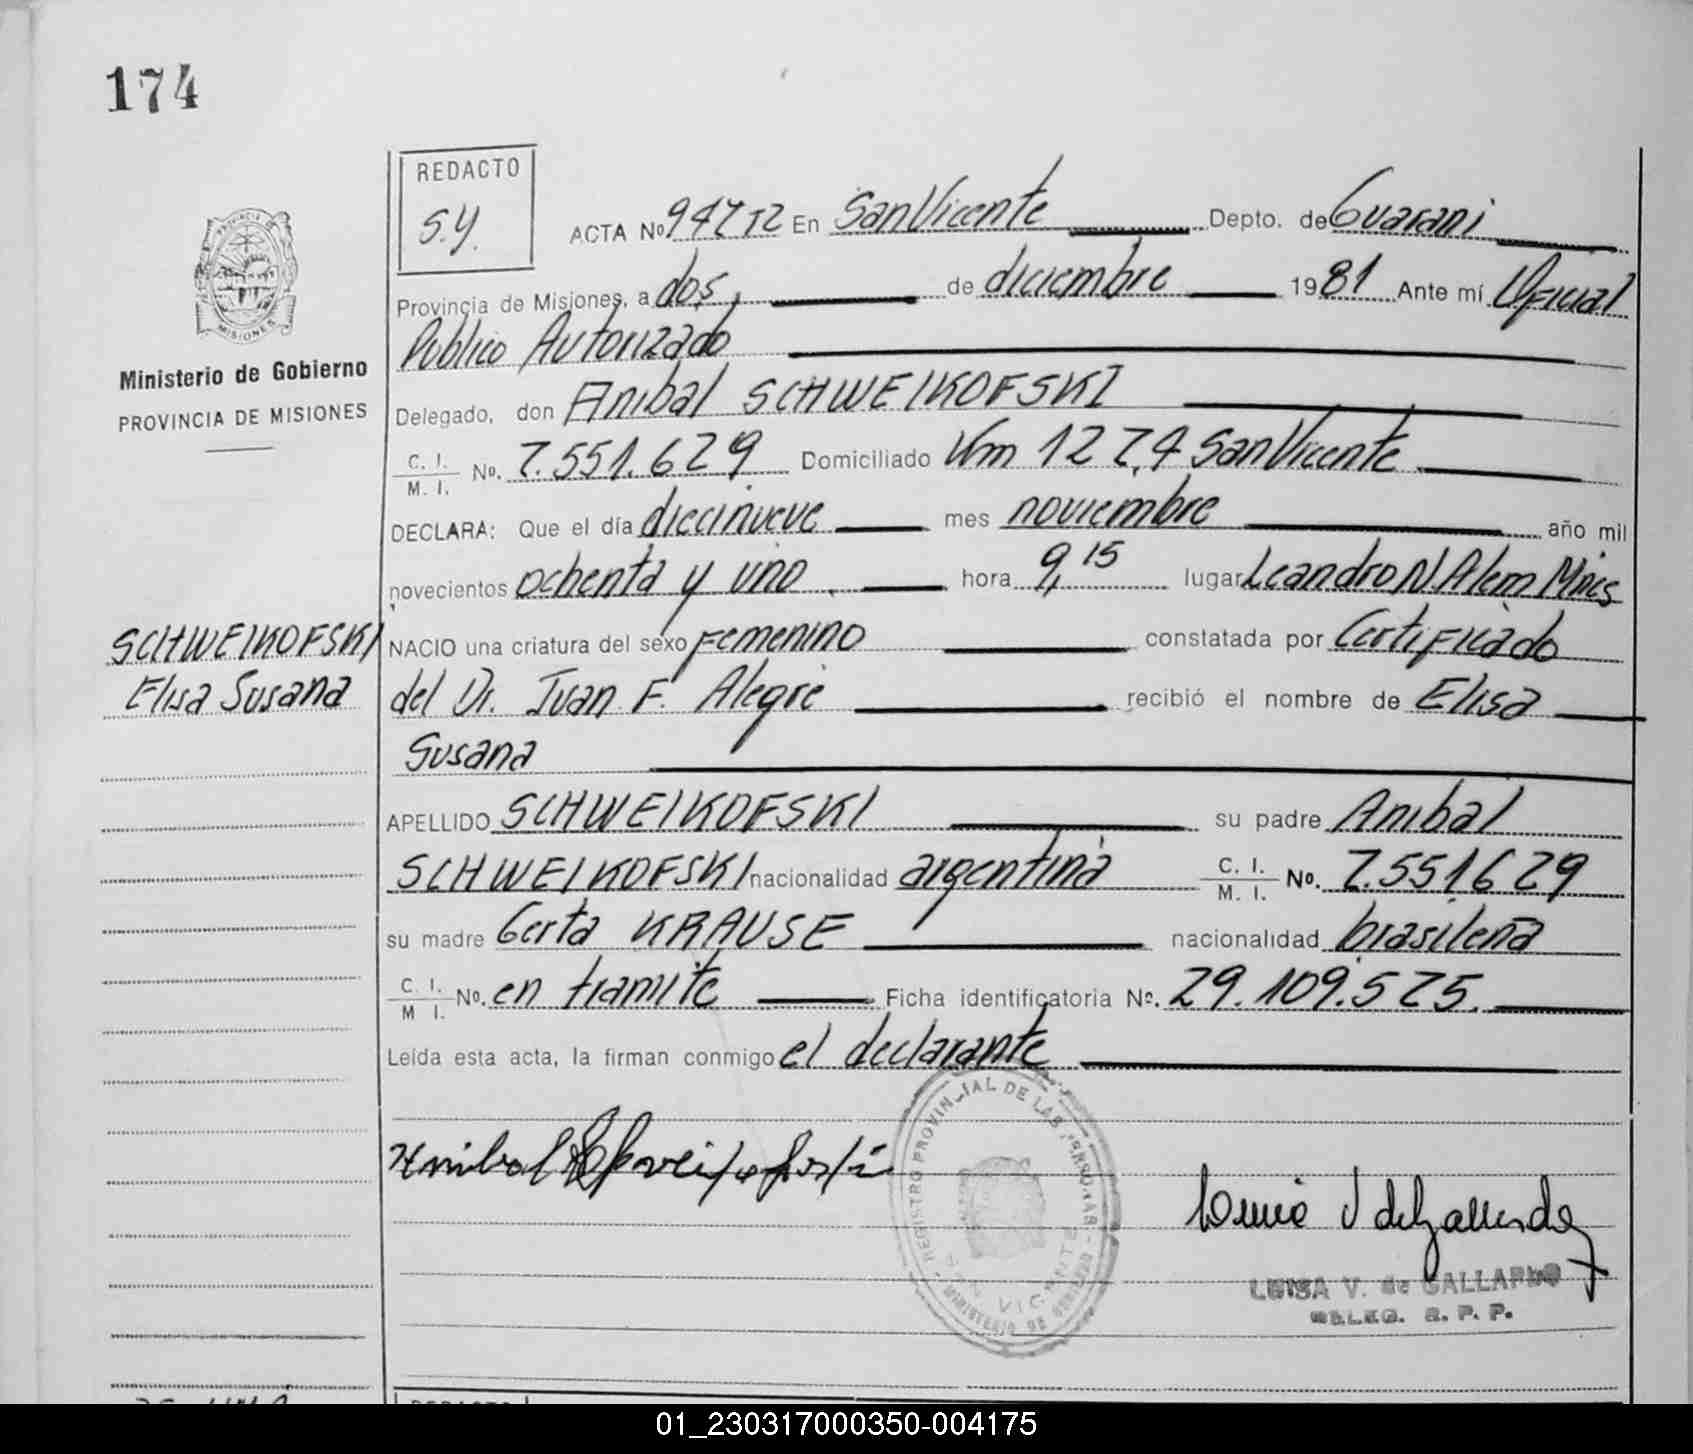 174
REDACTO
S.Y.
ACTA Nº 947 T2 En San Vicente Depto. de Guarani
Provincia de Misiones, a dos, de diciembre 1981 Ante mí Oficial
Publico Autorizado
Ministerio de Gobierno
PROVINCIA DE MISIONES
Delegado, don Anibal SCHWEIKOFSKI
C. I. M. I. No. 7.551.629 Domiciliado Km 1274 San Vicente
DECLARA: Que el día diecinueve mes noviembre año mil
novecientos ochenta y uno hora 9,15 lugar Leandro N. Alem Mnes
NACIO una criatura del sexo Femenino constatada por Certificado
del Dr. Juan F. Alegre recibió el nombre de Elisa
Susana
SCHWEIKOFSKI
Elisa Susana
APELLIDO SCHWEIKOFSKI su padre Anibal
SCHWEIKOFSKI nacionalidad argentina C. I. M. I. No. 7.551629
su madre Gerta KRAUSE nacionalidad brasileña
C. I. M I. No. en tramite Ficha identificatoria Nº. 29.109.575.
Leída esta acta, la firman conmigo el declarante
REGISTRO PROVINCIAL DE LAS PERSONAS
SAN VICENTE
MINISTERIO DE GOBIERNO
LUISA V. de GALLARDO
DELEG. R. P. P.
REDACTO
01_230317000350-004175